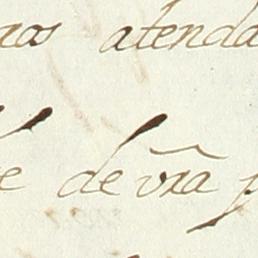 ras atenda
e de vr̃a p